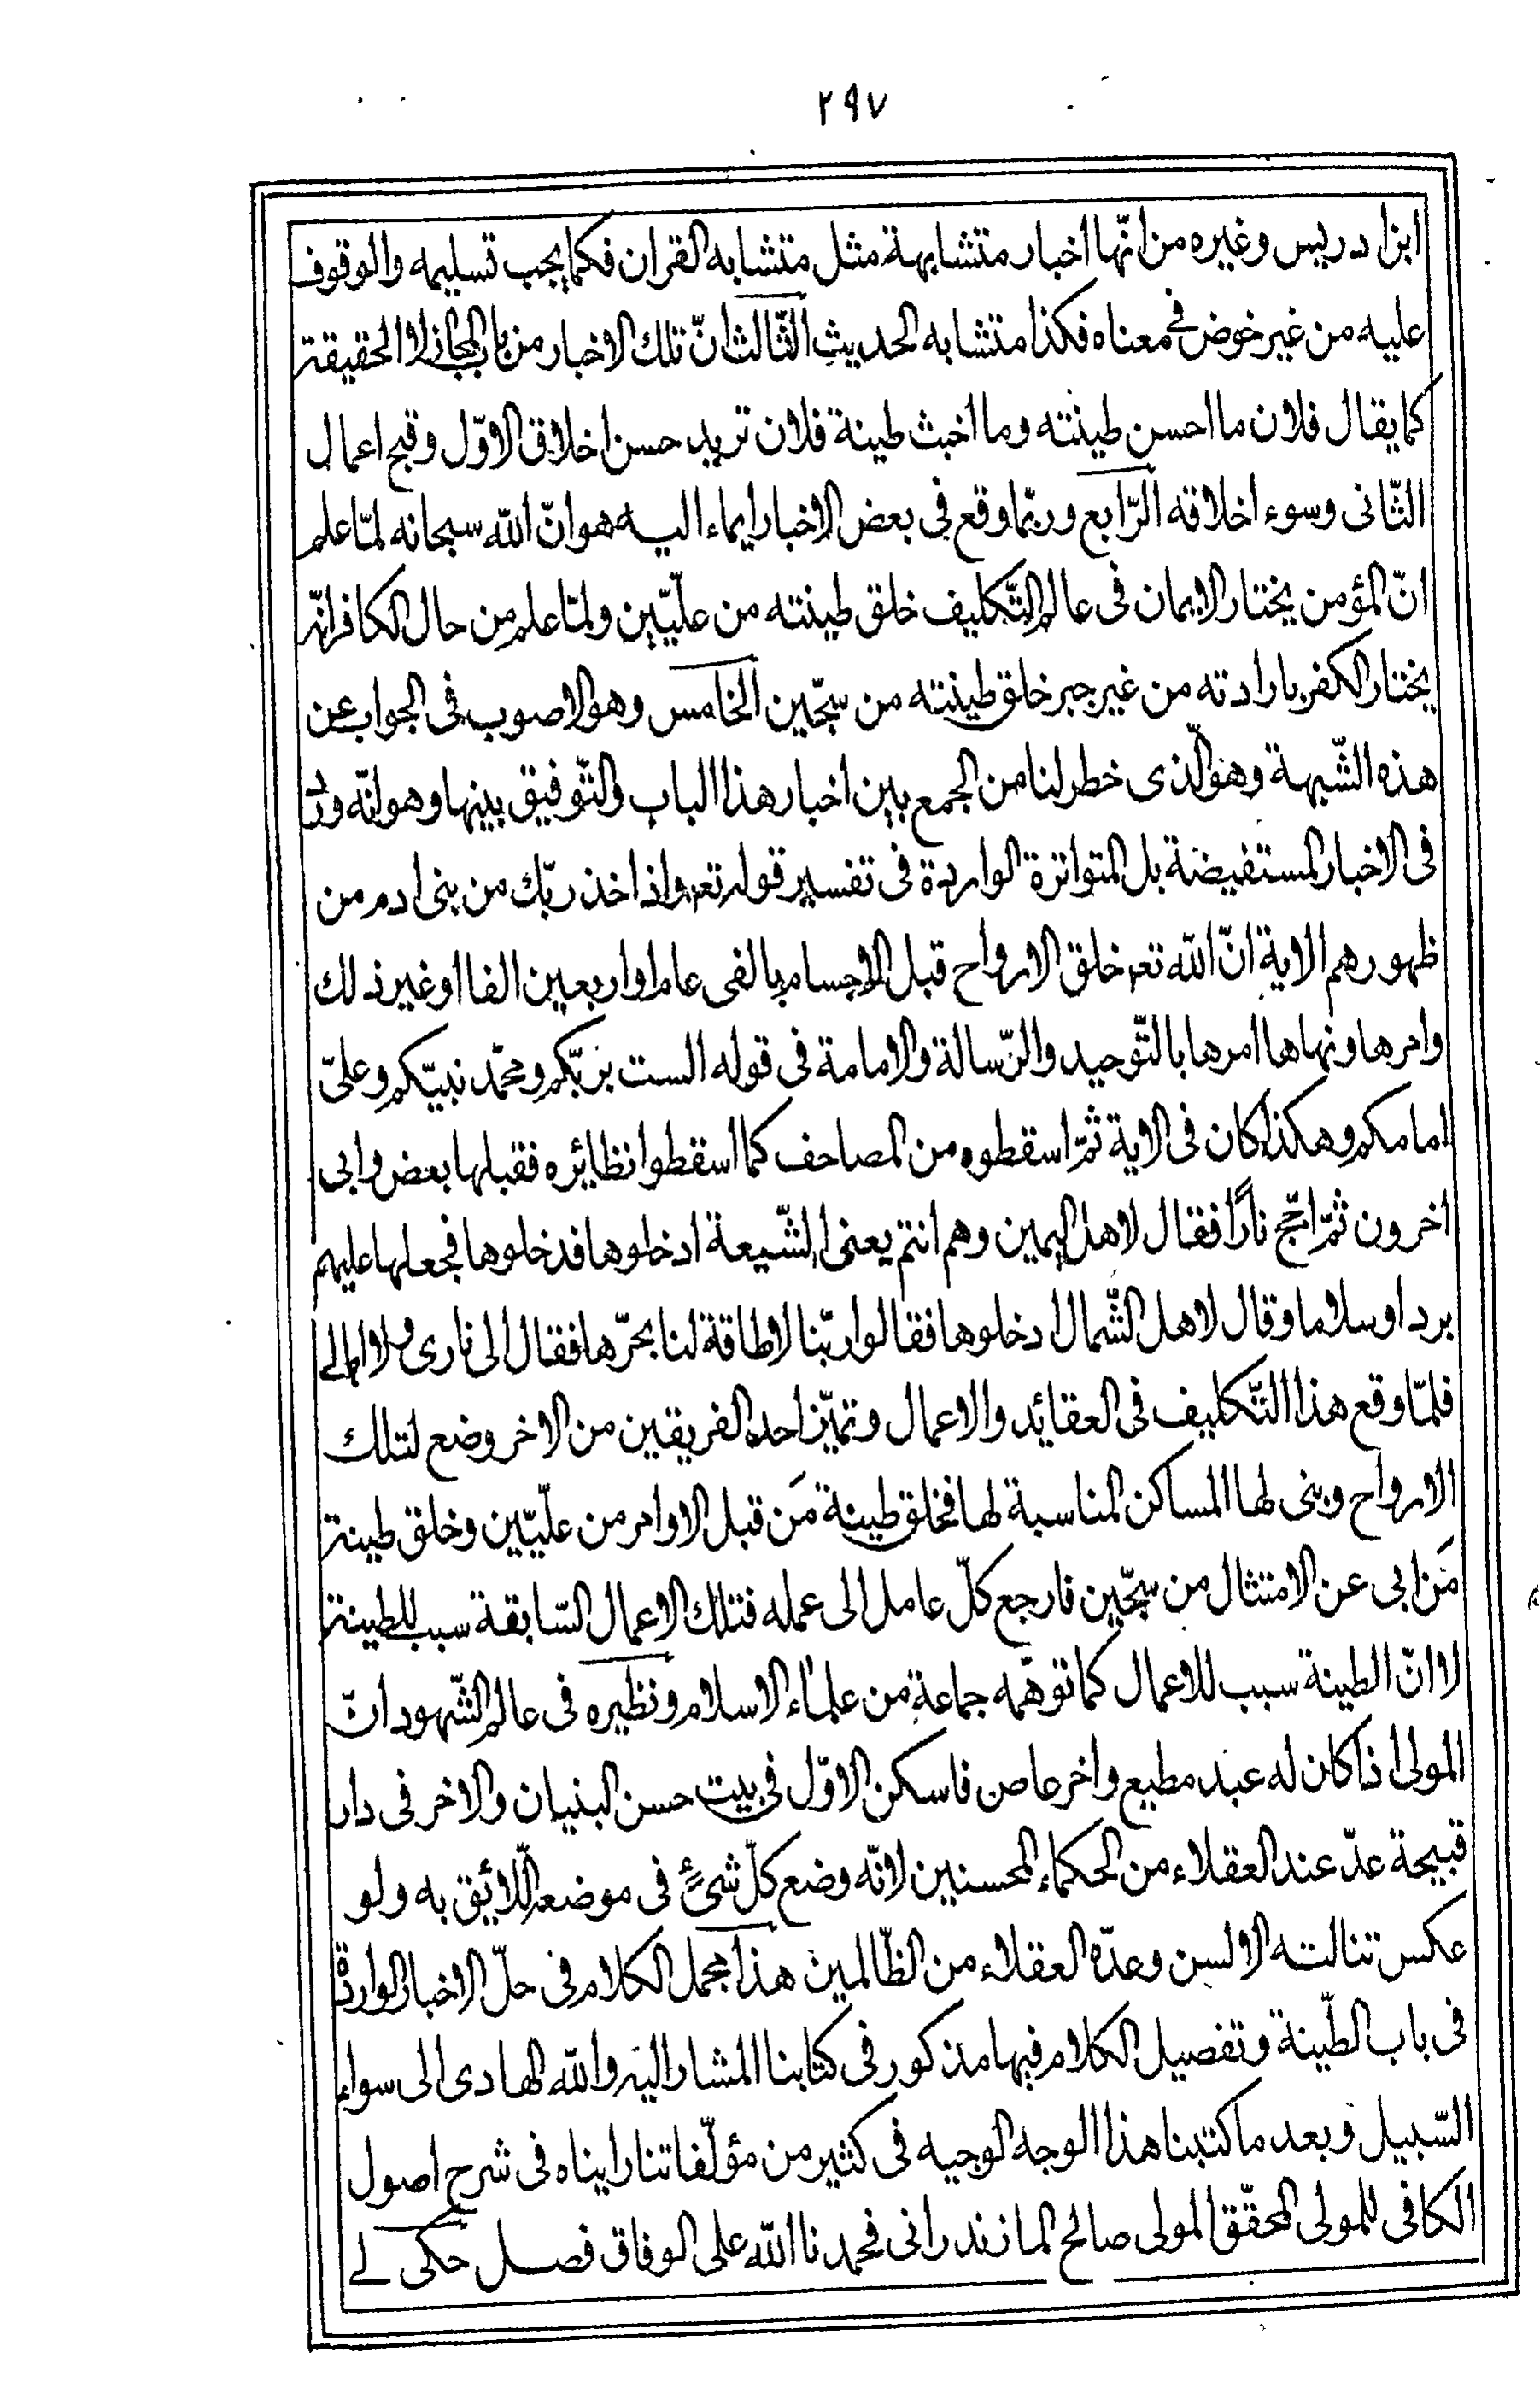 ٢٩٧
ابن ادريس وغيره من انّها اخبار متشابهة مثل متشابه القران فكما يجب تسليمه والوقوف
عليه من غير خوض فى معناه فكذا متشابه الحديث الثّالث انّ تلك الاخبار من باب المجاز لا الحقيقة
كما يقال فلان ما احسن طينته وما اخبث طينة فلان تريد حسن اخلاق الاوّل وقبح اعمال
الثّانى وسوء اخلاقه الرّابع وربّما وقع فى بعض الاخبار ايماء اليه هو انّ الله سبحانه لمّا علم
انّ المؤمن يختار الايمان فى عالم التّكليف خلق طينته من علّيّين ولمّا علم من حال الكافر انّه
يختار الكفر بارادته من غير جبر خلق طينته من سجّين الخامس وهو الاصوب فى الجواب عن
هذه الشّبهة وهو الّذى خطر لنا من الجمع بين اخبار هذا الباب والتّوفيق بينها وهو انّه ورد
فى الاخبار المستفيضة بل المتواترة الواردة فى تفسير قوله تعه واذ اخذ ربّك من بنى ادم من
ظهورهم الاية انّ الله تعه خلق الارواح قبل الاجسام بالفى عام او اربعين الفا او غير ذلك
وامرها ونهاها امرها بالتّوحيد والرّسالة والامامة فى قوله الست بربّكم ومحمّد نبيّكم وعلىّ
امامكم وهكذا كان فى الاية ثمّ اسقطوه من المصاحف كما اسقطوا نظائره فقبلها بعض وابى
اخرون ثمّ اجّج نارًا فقال لاهل اليمين وهم انتم يعنى الشّيعة ادخلوها فدخلوها فجعلها عليهم
بردا وسلاما وقال لاهل الشّمال ادخلوها فقالوا ربّنا لا طاقة لنا بحرّها فقال الى نارى ولا ابالى
فلمّا وقع هذا التّكليف فى العقائد والاعمال وتميّز احد الفريقين من الاخر وضع لتلك
الارواح وبنى لها المساكن المناسبة لها فخلق طينة مَن قبل الاوامر من علّيّين وخلق طينة
مَن ابى عن الامتثال من سجّين فارجع كلّ عامل الى عمله فتلك الاعمال السّابقة سبب للطينة
لا انّ الطينة سبب للاعمال كما توهّمه جماعة من علماء الاسلام ونظيره فى عالم الشّهود انّ
المولى اذا كان له عبد مطيع واخر عاص فاسكن الاوّل فى بيت حسن البنيان والاخر فى دار
قبيحة عدّ عند العقلاء من الحكماء المحسنين لانّه وضع كلّ شئ فى موضعه اللّائق به ولو
عكس تنالته الالسن وعدّه العقلاء من الظّالمين هذا مجمل الكلام فى حلّ الاخبار الواردة
فى باب الطّينة وتفصيل الكلام فيها مذكور فى كتابنا المشار اليه والله الهادى الى سواء
السّبيل وبعد ما كتبنا هذا الوجه الوجيه فى كثير من مؤلّفاتنا رايناه فى شرح اصول
الكافى للمولى المحقّق المولى صالح المازندرانى فحمدنا الله على الوفاق فصل حكى لى